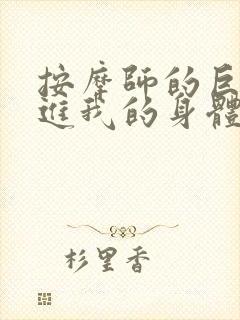 按摩師的巨
進我的身體
杉里香